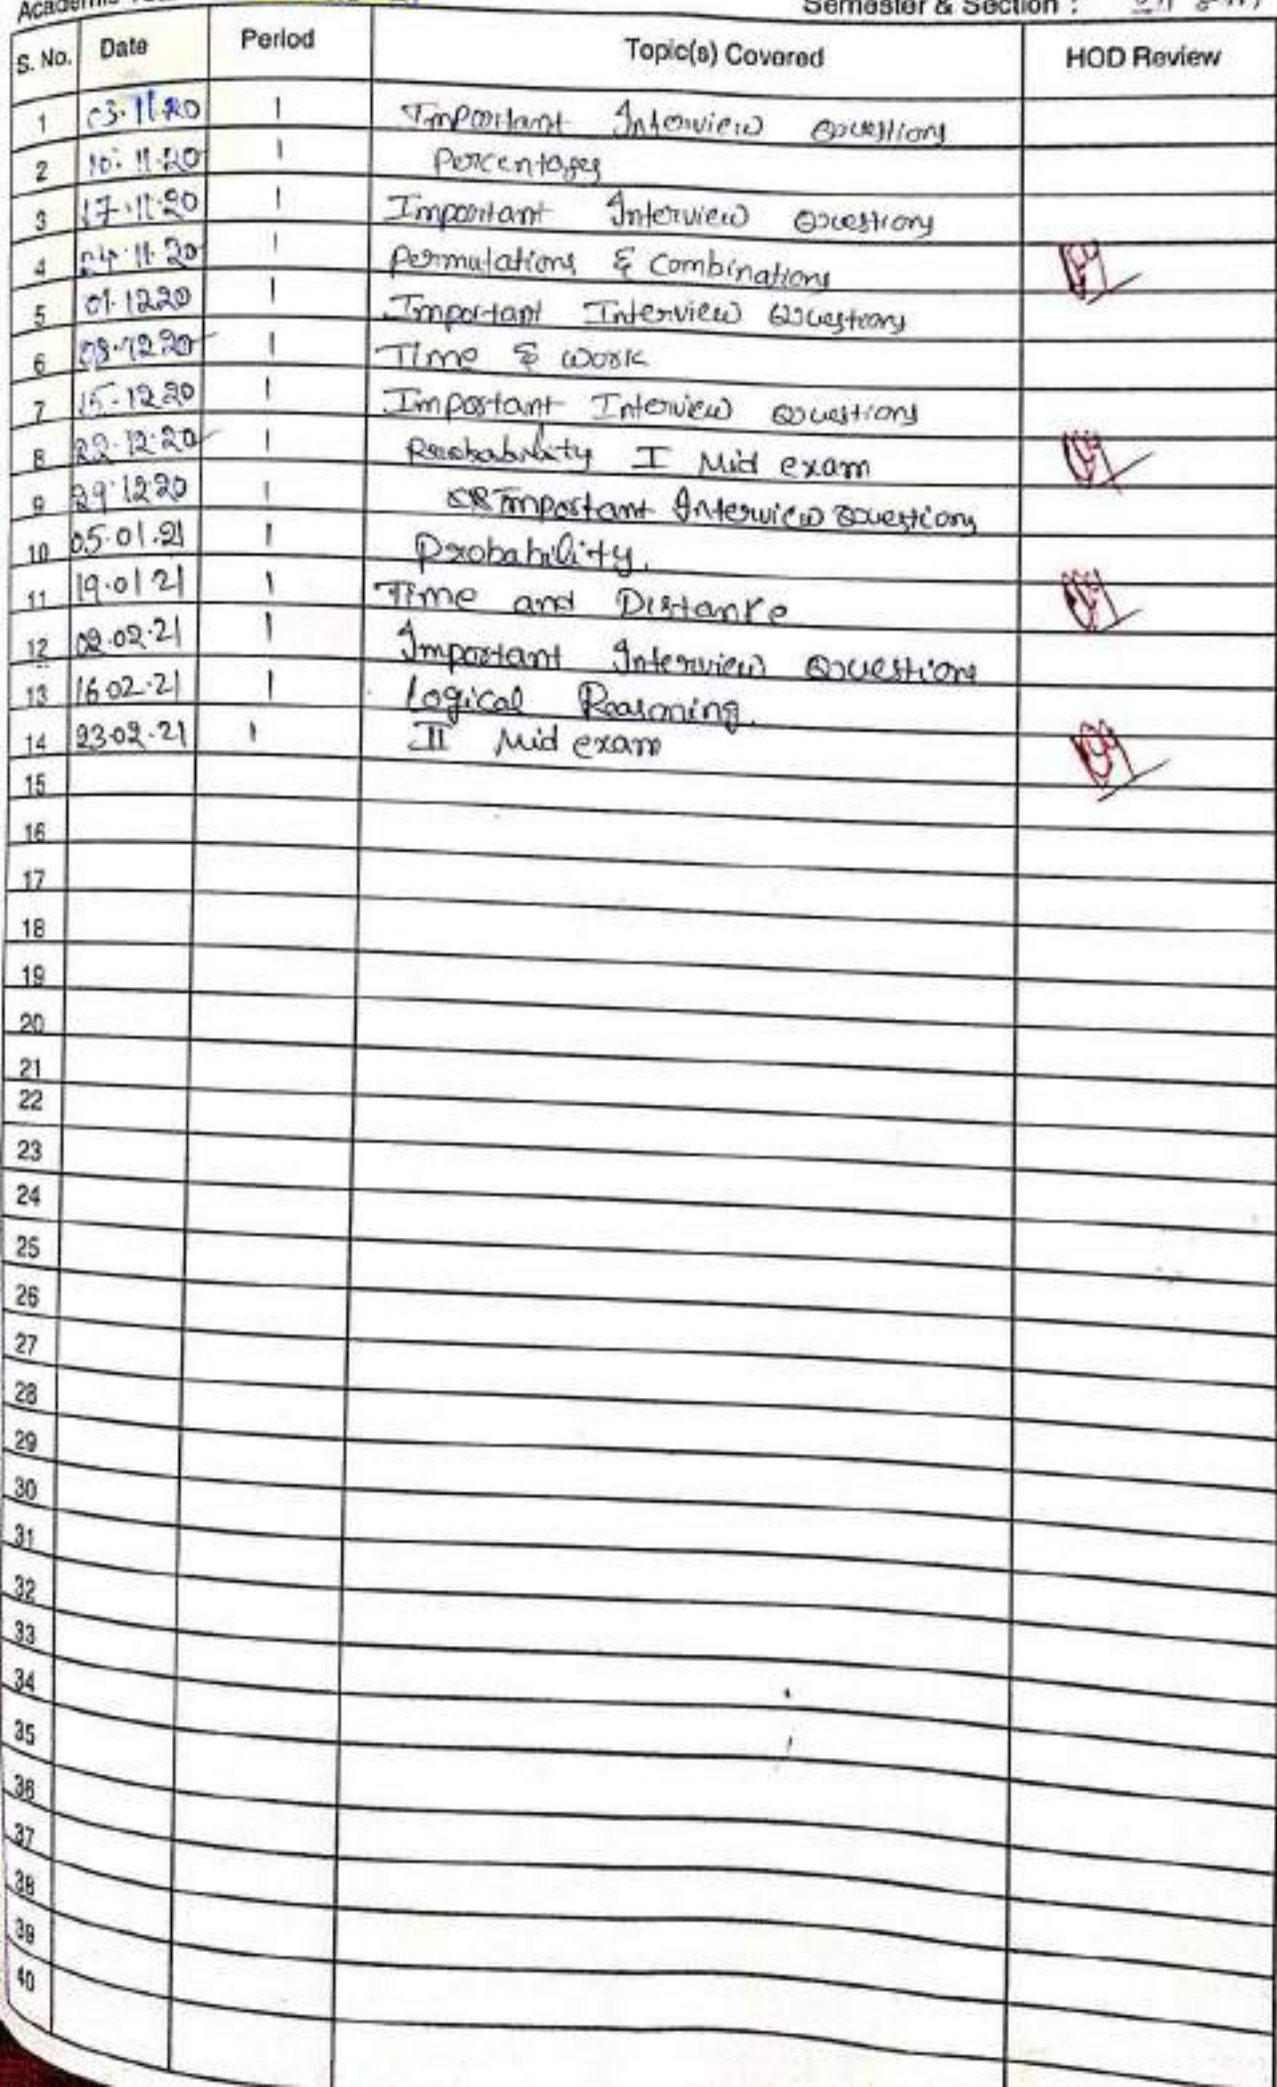 Semester & Section :
S. No. Date Period Topic(s) Covered HOD Review
1 03.11.20 1 Important Interview Questions
2 10.11.20 1 Percentages
3 17.11.20 1 Important Interview Questions
4 24.11.20 1 Permutations & Combinations
5 01.12.20 1 Important Interview Questions
6 08.12.20 1 Time & work
7 15.12.20 1 Important Interview Questions
8 22.12.20 1 I Mid exam
9 29.12.20 1 Important Interview Questions
10 05.01.21 1 Probability.
11 19.01.21 1 Time and Distance
12 02.02.21 1 Important Interview Questions
13 16.02.21 1 Logical Reasoning.
14 23.02.21 1 II Mid exam
15
16
17
18
19
20
21
22
23
24
25
26
27
28
29
30
31
32
33
34
35
36
37
38
39
40